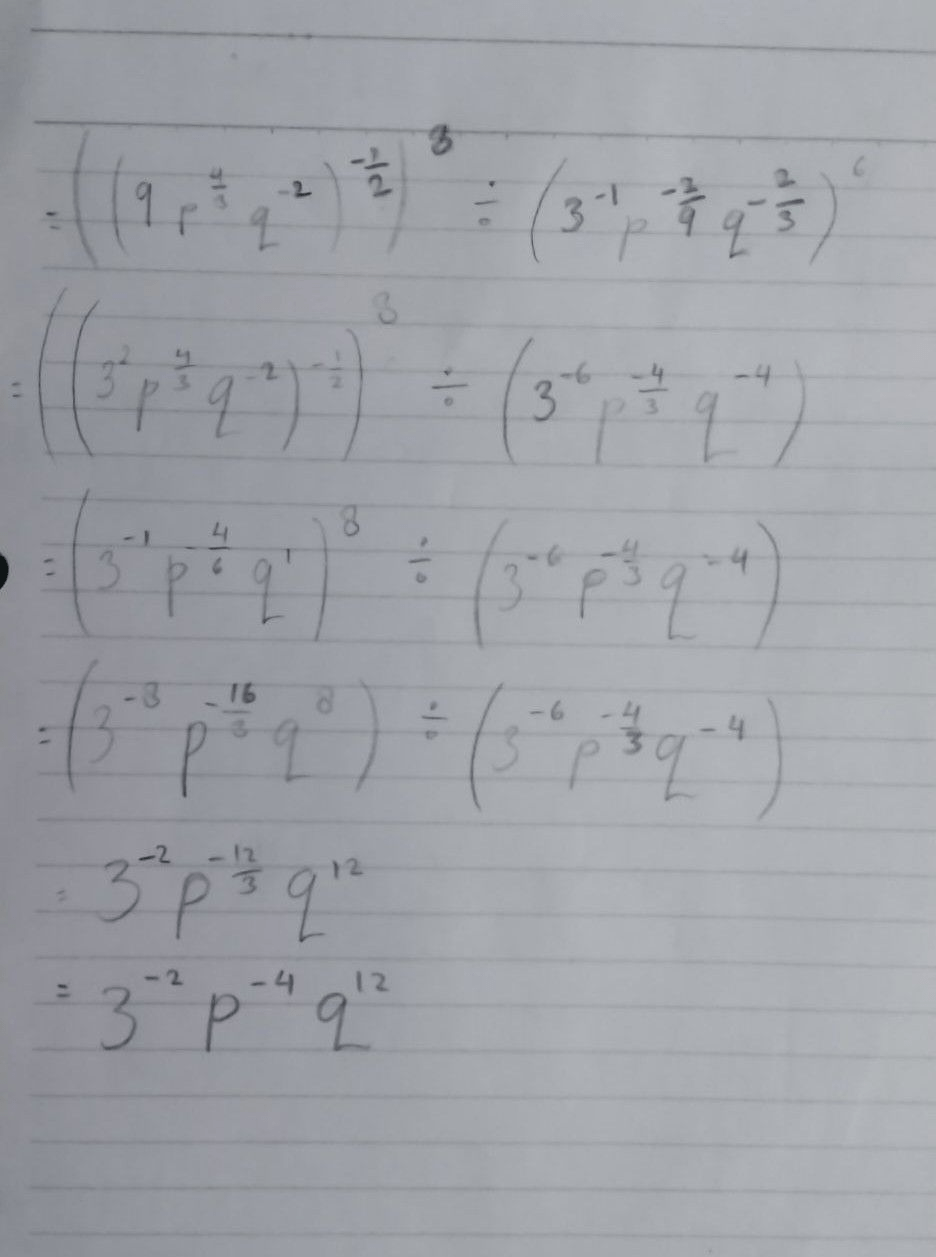 = ((9 p^{4/3} q^{-2})^{-1/2})^8 ÷ (3^{-1} p^{-2/9} q^{-2/3})^6
= ((3^2 p^{4/3} q^{-2})^{-1/2})^8 ÷ (3^{-6} p^{-4/3} q^{-4})
= (3^{-1} p^{-4/6} q^1)^8 ÷ (3^{-6} p^{-4/3} q^{-4})
= (3^{-8} p^{-16/3} q^8) ÷ (3^{-6} p^{-4/3} q^{-4})
= 3^{-2} p^{-12/3} q^{12}
= 3^{-2} p^{-4} q^{12}